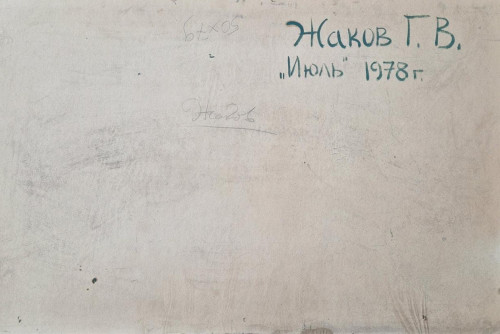 Жаков Г. В.
„Июль" 1978 г.
Жаков